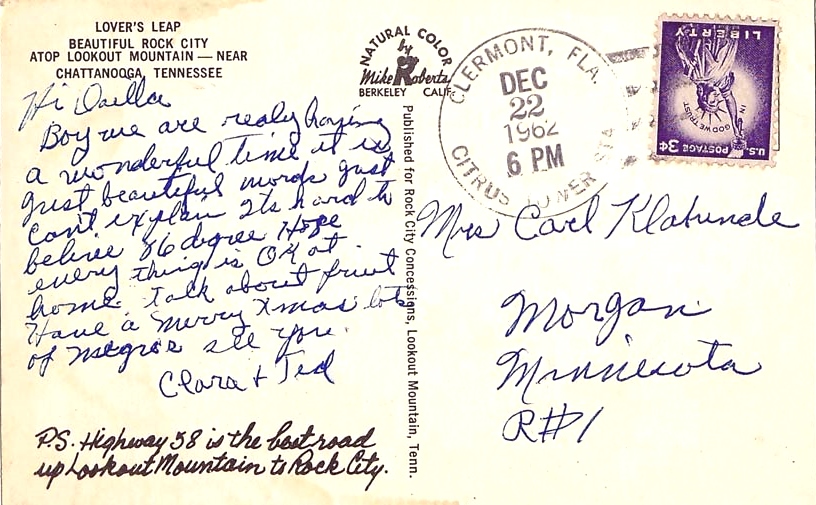 LOVER'S LEAP
BEAUTIFUL ROCK CITY
ATOP LOOKOUT MOUNTAIN — NEAR
CHATTANOOGA, TENNESSEE
Hi Dolla
Boy we are realy having
a wonderful time it is
just beautiful words just
cant explain its hard to
belive 86 degree Hope
every thing is OK at
home. talk about fruit
Have a merry Xmas lots
of negros see you.
Clara + Ted
P.S. Highway 58 is the best road
up Lookout Mountain to Rock City.
NATURAL COLOR
by
Mike Roberts
BERKELEY CALIF.
Published for Rock City Concessions, Lookout Mountain, Tenn.
CLERMONT, FLA.
DEC
22
1962
6 PM
CITRUS TOWER STA
LIBERTY
IN GOD WE TRUST
U.S. POSTAGE 3¢
Mrs Carl
Morgan
Minnesota
R#1